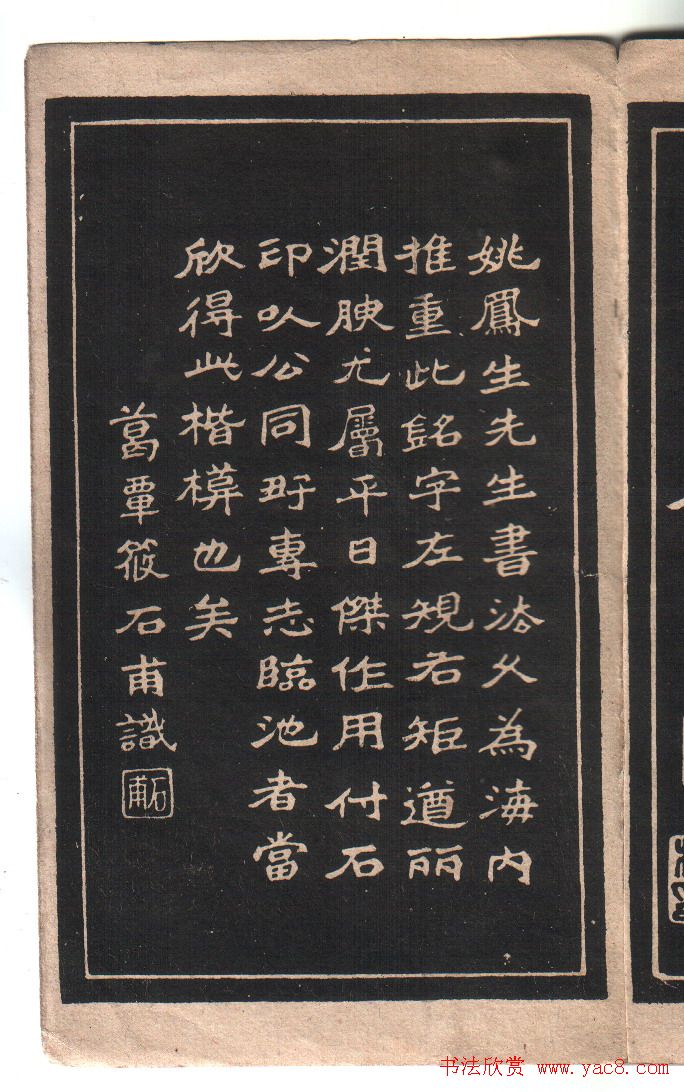 姚鳳生先生書法久為海内
推重此銘字左規右矩遒丽
潤腴尤屬平日傑作用付石
印以公同好專志臨池者當
欣得此楷模也矣
葛覃筱石甫識
石甫
书法欣赏 www.yac8.com